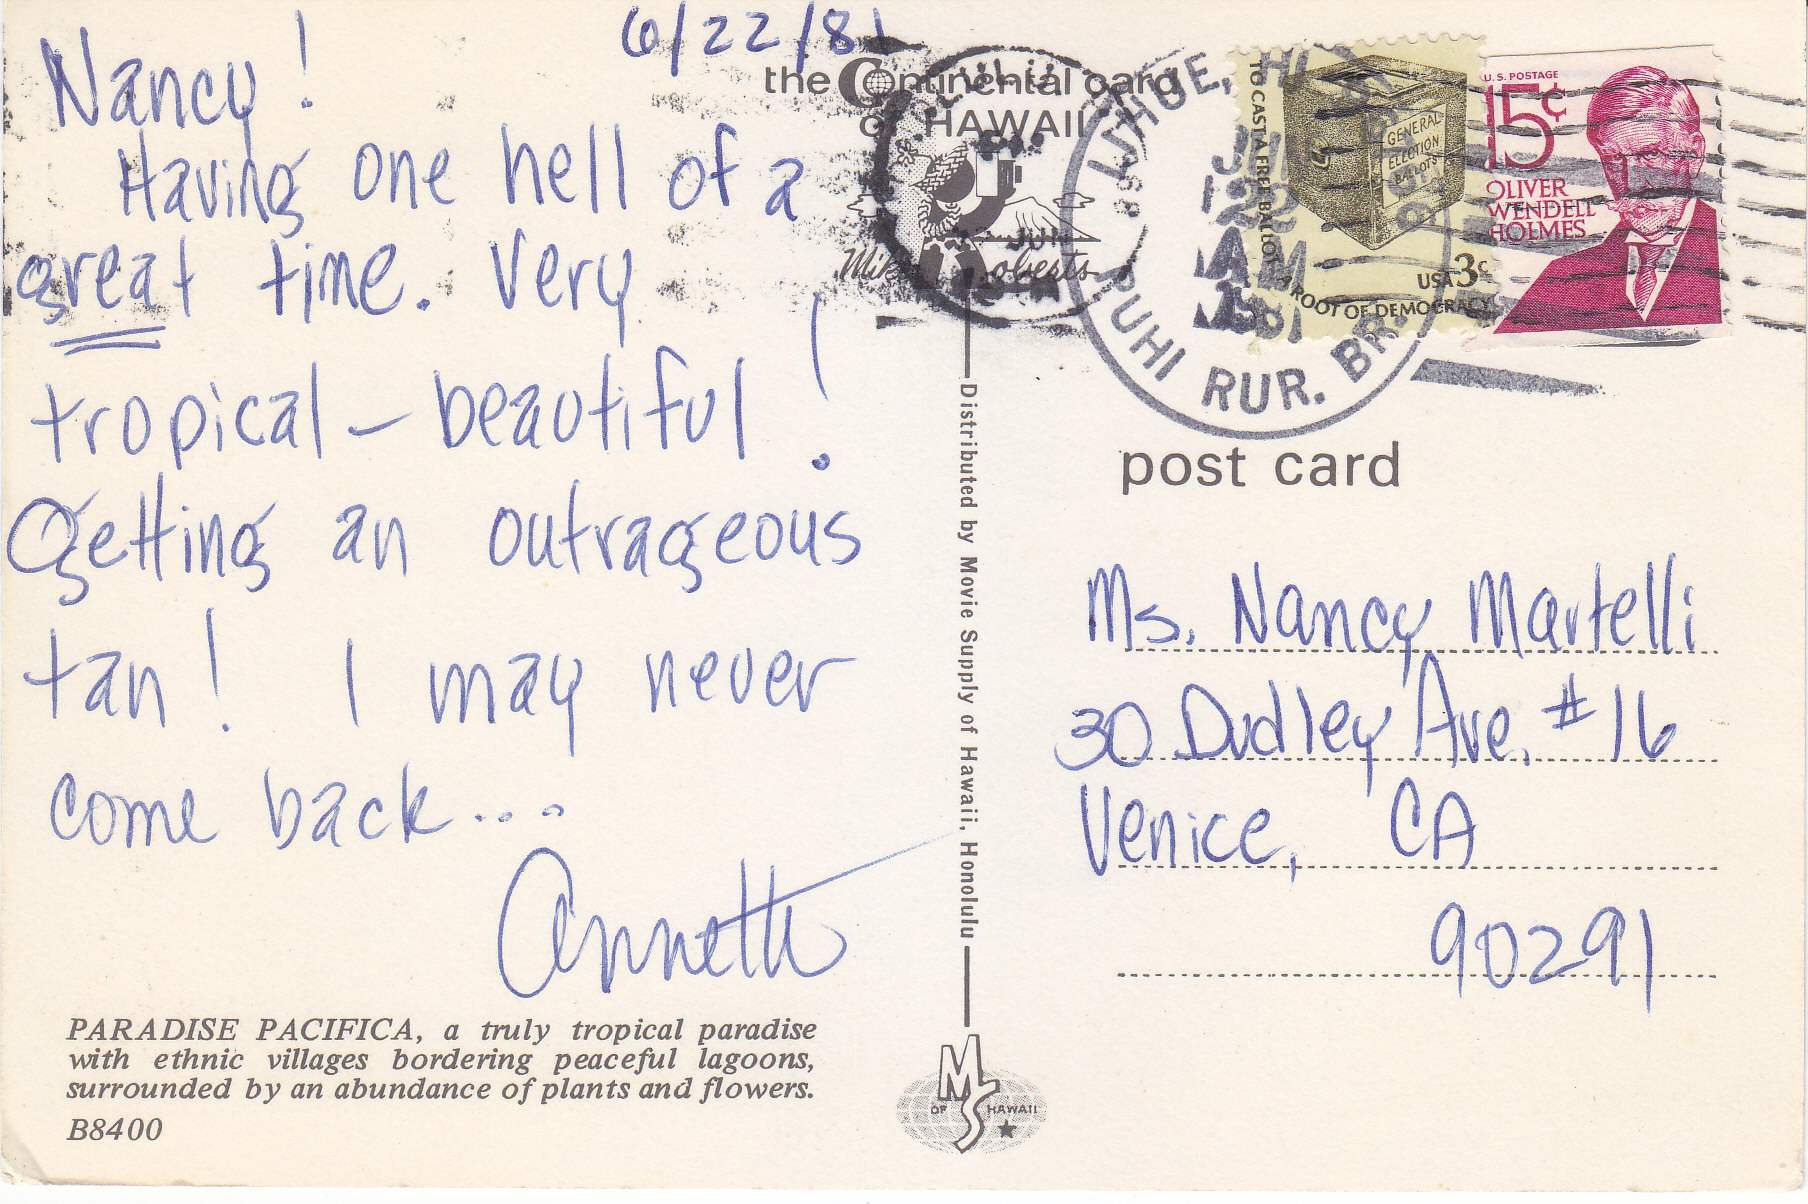 6/22/81
Nancy!
Having one hell of a
great time. Very
tropical - beautiful!
Getting an outrageous
tan! I may never
come back....
Annette
PARADISE PACIFICA, a truly tropical paradise
with ethnic villages bordering peaceful lagoons,
surrounded by an abundance of plants and flowers.
B8400
the Continental card
of HAWAII
Mike Roberts
Distributed by Movie Supply of Hawaii, Honolulu
MS
OF HAWAII
LIHUE, HI
JUN
22
AM
1981
PUHI RUR. BR.
TO CAST A FREE BALLOT A ROOT OF DEMOCRACY
GENERAL
ELECTION
BALLOTS
USA 3c
U.S. POSTAGE
15¢
OLIVER
WENDELL
HOLMES
post card
Ms. Nancy Martelli
30 Dudley Ave. #16
Venice, CA
90291